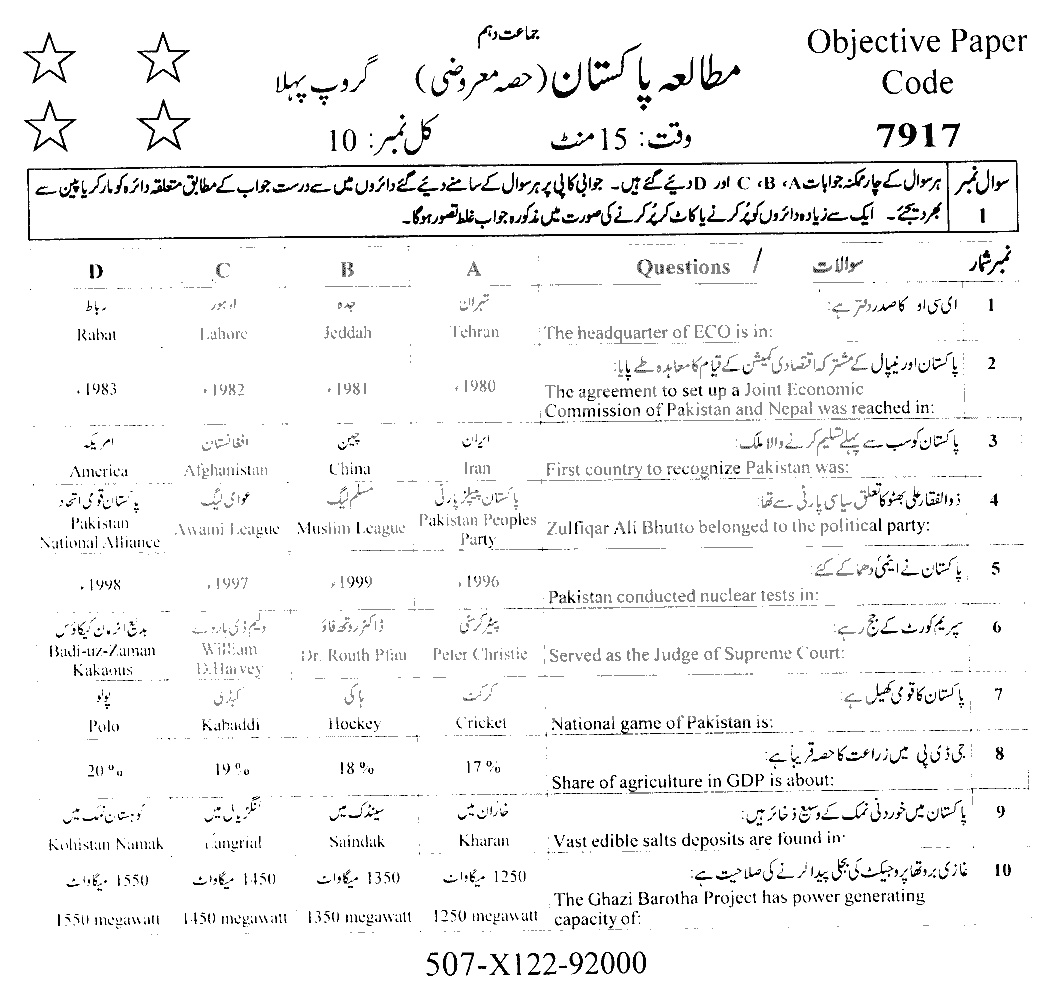 جماعت دہم
مطالعہ پاکستان (حصہ معروضی) گروپ پہلا
Objective Paper
Code
7917
وقت: 15 منٹ کل نمبر: 10
سوال نمبر 1
ہر سوال کے چار ممکنہ جوابات A، B، C اور D دیئے گئے ہیں۔ جوابی کاپی پر ہر سوال کے سامنے دیئے گئے دائروں میں سے درست جواب کے مطابق متعلقہ دائرہ کو مارکر یا پین سے
بھر دیجئے۔ ایک سے زیادہ دائروں کو پُر کرنے یا کاٹ کر پُر کرنے کی صورت میں مذکورہ جواب غلط تصور ہوگا۔
D C B A Questions / سوالات نمبر شمار
1 ای سی او کا صدر دفتر ہے:
تہران جدہ لاہور رباط
Rabat Lahore Jeddah Tehran The headquarter of ECO is in:
2 پاکستان اور نیپال کے مشترکہ اقتصادی کمیشن کے قیام کا معاہدہ طے پایا:
1983ء 1982ء 1981ء 1980ء The agreement to set up a Joint Economic
Commission of Pakistan and Nepal was reached in:
3 پاکستان کو سب سے پہلے تسلیم کرنے والا ملک:
ایران چین افغانستان امریکہ
America Afghanistan China Iran First country to recognize Pakistan was:
4 ذوالفقار علی بھٹو کا تعلق سیاسی پارٹی سے تھا:
پاکستان پیپلز پارٹی مسلم لیگ عوامی لیگ پاکستان قومی اتحاد
Pakistan National Alliance Awami League Muslim League Pakistan Peoples Party Zulfiqar Ali Bhutto belonged to the political party:
5 پاکستان نے ایٹمی دھماکے کئے:
1998ء 1997ء 1999ء 1996ء Pakistan conducted nuclear tests in:
6 سپریم کورٹ کے جج رہے:
پیٹر کرسٹی ڈاکٹر روتھ فاؤ ولیم ڈی ہاروے بدیع الزمان کیکاؤس
Badi-uz-Zaman Kakaous William D.Harvey Dr. Routh Pfau Peter Christie Served as the Judge of Supreme Court:
7 پاکستان کا قومی کھیل ہے:
کرکٹ ہاکی کبڈی پولو
Polo Kabaddi Hockey Cricket National game of Pakistan is:
8 جی ڈی پی میں زراعت کا حصہ قریباً ہے:
20% 19% 18% 17% Share of agriculture in GDP is about:
9 پاکستان میں خوردنی نمک کے وسیع ذخائر ہیں:
خاران میں سینڈک میں لنگڑیال میں کوہستان نمک میں
Kohistan Namak Langrial Saindak Kharan Vast edible salts deposits are found in:
10 غازی بروتھا پروجیکٹ کی بجلی پیدا کرنے کی صلاحیت ہے:
1250 میگاواٹ 1350 میگاواٹ 1450 میگاواٹ 1550 میگاواٹ
The Ghazi Barotha Project has power generating
1550 megawatt 1450 megawatt 1350 megawatt 1250 megawatt capacity of:
507-X122-92000